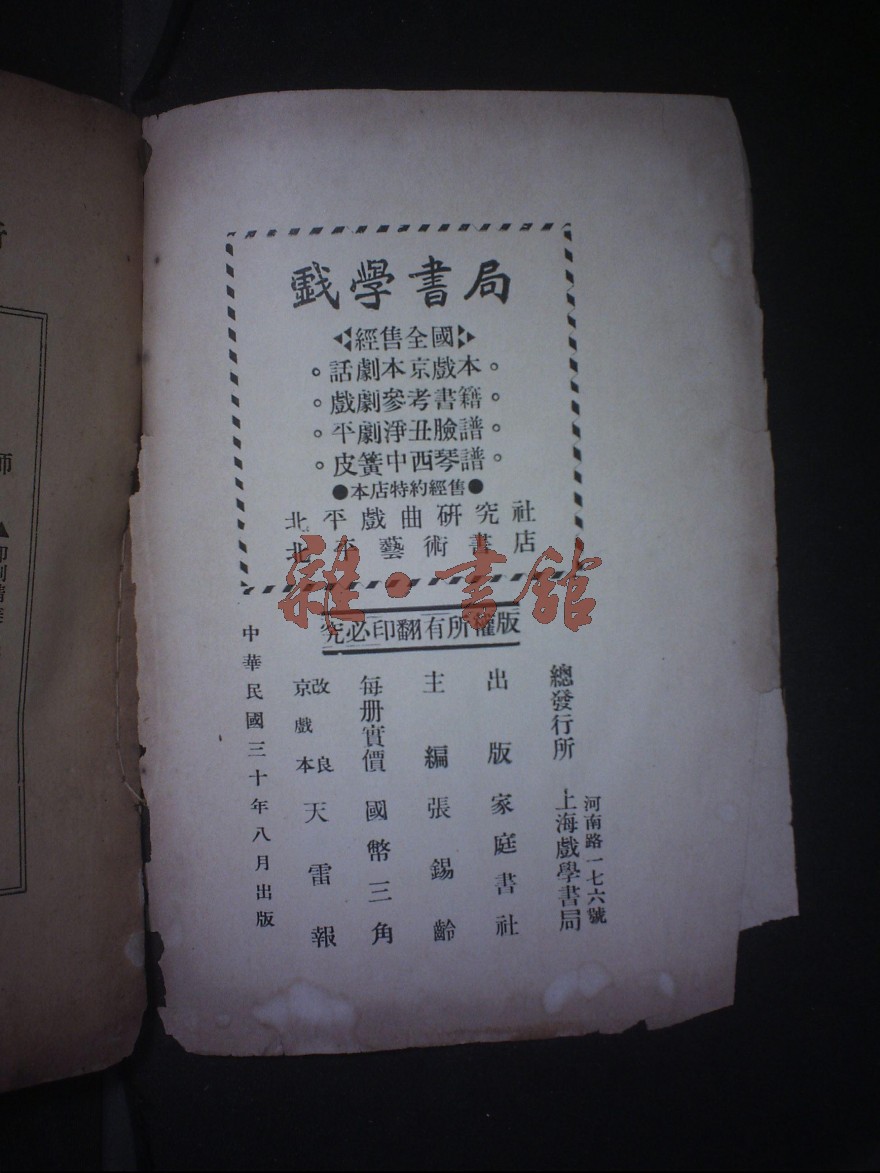 戲學書局
經售全國
。話劇本京戲本。
。戲劇參考書籍。
。平劇淨丑臉譜。
。皮簧中西琴譜。
●本店特約經售●
北平戲曲研究社
北平藝術書店
雜·書館
版權所有翻印必究
總發行所
河南路一七六號
上海戲學書局
出版 家庭書社
主編 張錫齡
每册實價 國幣三角
改良京戲本 天雷報
中華民國三十年八月出版
師